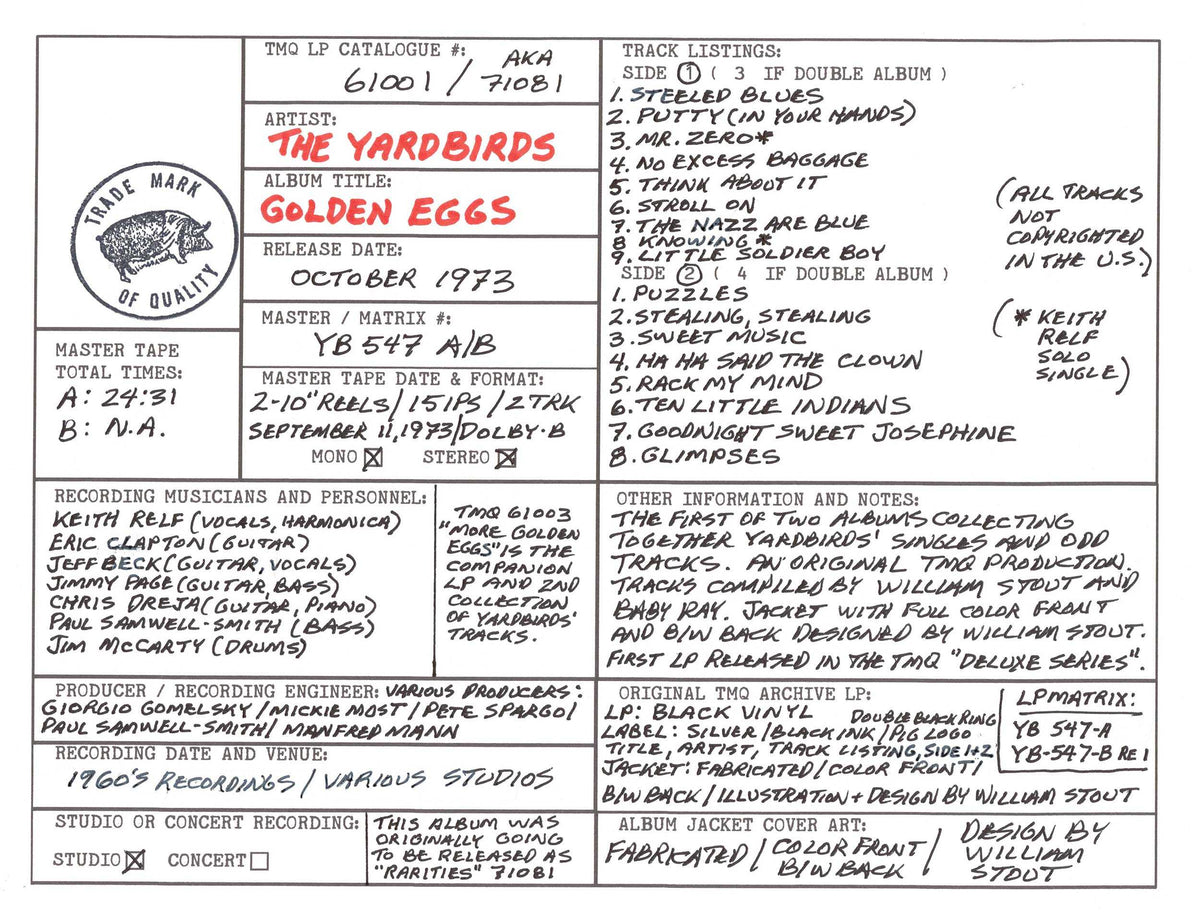 TRADE MARK
OF QUALITY
MASTER TAPE
TOTAL TIMES:
A: 24:31
B: N.A.
TMQ LP CATALOGUE #: AKA
61001 / 71081
ARTIST:
THE YARDBIRDS
ALBUM TITLE:
GOLDEN EGGS
RELEASE DATE:
OCTOBER 1973
MASTER / MATRIX #:
YB 547 A/B
MASTER TAPE DATE & FORMAT:
2-10" REELS / 15 IPS / 2 TRK
SEPTEMBER 11, 1973/DOLBY-B
MONO ☒ STEREO ☒
TRACK LISTINGS:
SIDE ① ( 3 IF DOUBLE ALBUM )
1. STEELED BLUES
2. PUTTY (IN YOUR HANDS)
3. MR. ZERO*
4. NO EXCESS BAGGAGE
5. THINK ABOUT IT
6. STROLL ON
7. THE NAZZ ARE BLUE
8 KNOWING*
9. LITTLE SOLDIER BOY
(ALL TRACKS
NOT
COPYRIGHTED
IN THE U.S.)
SIDE ② ( 4 IF DOUBLE ALBUM )
1. PUZZLES
2. STEALING, STEALING
3. SWEET MUSIC
4. HA HA SAID THE CLOWN
5. RACK MY MIND
6. TEN LITTLE INDIANS
7. GOODNIGHT SWEET JOSEPHINE
8. GLIMPSES
(* KEITH
RELF
SOLO
SINGLE)
RECORDING MUSICIANS AND PERSONNEL:
KEITH RELF (VOCALS, HARMONICA)
ERIC CLAPTON (GUITAR)
JEFF BECK (GUITAR, VOCALS)
JIMMY PAGE (GUITAR, BASS)
CHRIS DREJA (GUITAR, PIANO)
PAUL SAMWELL-SMITH (BASS)
JIM McCARTY (DRUMS)
TMQ 61003
"MORE GOLDEN
EGGS" IS THE
COMPANION
LP AND 2ND
COLLECTION
OF YARDBIRDS'
TRACKS.
OTHER INFORMATION AND NOTES:
THE FIRST OF TWO ALBUMS COLLECTING
TOGETHER YARDBIRDS' SINGLES AND ODD
TRACKS. AN ORIGINAL TMQ PRODUCTION.
TRACKS COMPILED BY WILLIAM STOUT AND
BABY RAY. JACKET WITH FULL COLOR FRONT
AND B/W BACK DESIGNED BY WILLIAM STOUT.
FIRST LP RELEASED IN THE TMQ "DELUXE SERIES".
PRODUCER / RECORDING ENGINEER: VARIOUS PRODUCERS:
GIORGIO GOMELSKY / MICKIE MOST / PETE SPARGO/
PAUL SAMWELL-SMITH / MANFRED MANN
RECORDING DATE AND VENUE:
1960'S RECORDINGS / VARIOUS STUDIOS
STUDIO OR CONCERT RECORDING:
STUDIO ☒ CONCERT ☐
THIS ALBUM WAS
ORIGINALLY GOING
TO BE RELEASED AS
"RARITIES" 71081
ORIGINAL TMQ ARCHIVE LP:
LP: BLACK VINYL DOUBLE BLACK RING
LABEL: SILVER / BLACK INK / PIG LOGO
TITLE, ARTIST, TRACK LISTING, SIDE 1+2
JACKET: FABRICATED / COLOR FRONT /
B/W BACK / ILLUSTRATION + DESIGN BY WILLIAM STOUT
LP MATRIX:
YB 547-A
YB-547-B RE 1
ALBUM JACKET COVER ART:
FABRICATED / COLOR FRONT /
B/W BACK
DESIGN BY
WILLIAM
STOUT